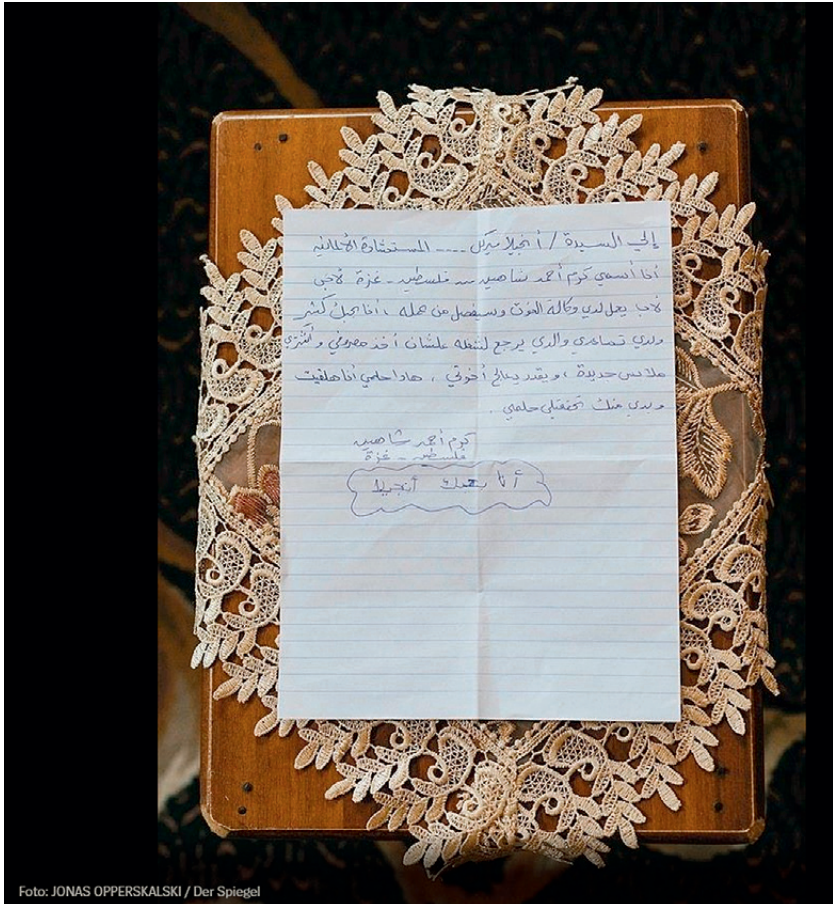 إلى السيدة / أنجيلا ميركل ---- المستشارة الألمانية
أنا أسمي كرم أحمد شاهين من فلسطين - غزة لاجئ
لأب يعمل لدي وكالة الغوث وسيفصل من عمله ، أنا بحبك كثير
وبدي تساعدي والدي يرجع لشغله علشان أخذ مصروفي وأشتري
ملابس جديدة ، ويقدر يعالج أخوتي ، هادا حلمي أنا
وبدي منك تحققيلي حلمي .
كرم أحمد شاهين
فلسطين - غزة
أنا بحبك أنجيلا
Foto: JONAS OPPERSKALSKI / Der Spiegel